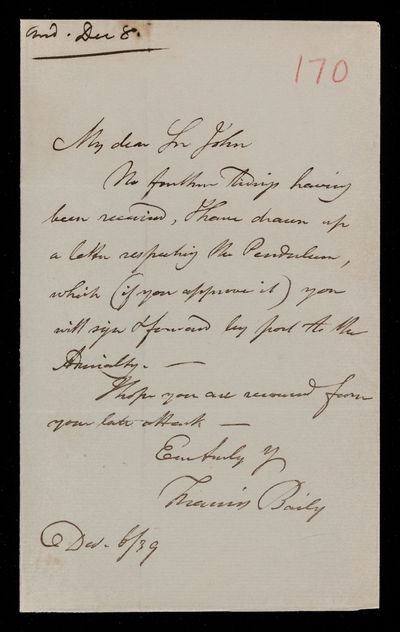 and. Dec 8.
170
My dear Sir John
No further tidings having
been received, I have drawn up
a letter respecting the Pendulum,
which (if you approve it) you
will sign & forward by post to the
Admiralty. —
I hope you are recovered from
your late attack —
Ever truly Y
Francis Baily
Dec. 6/39